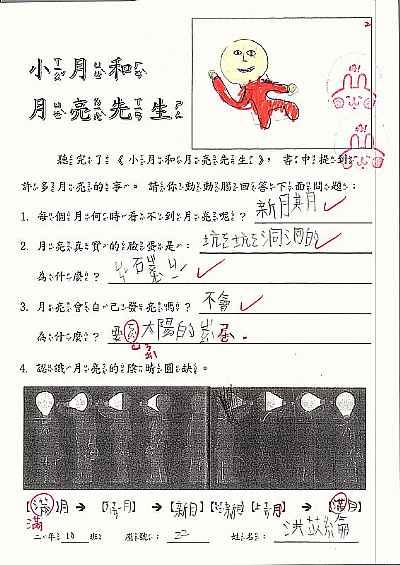 小月和
月亮先生
聽完了《小月和月亮先生》，書中提到
許多月亮的事。請你動動腦回答下面問題：
1. 每個月何時看不到月亮呢？新月期月
2. 月亮真實的臉蛋是：坑坑洞洞的
為什麼？
3. 月亮會自己發亮嗎？不會
為什麼？
4. 認識月亮的陰晴圓缺。
【滿】月 → 【 月】 → 【新月】 【上 月】 → 【滿月】
滿
二年 10 班 座號： 22 姓名：洪